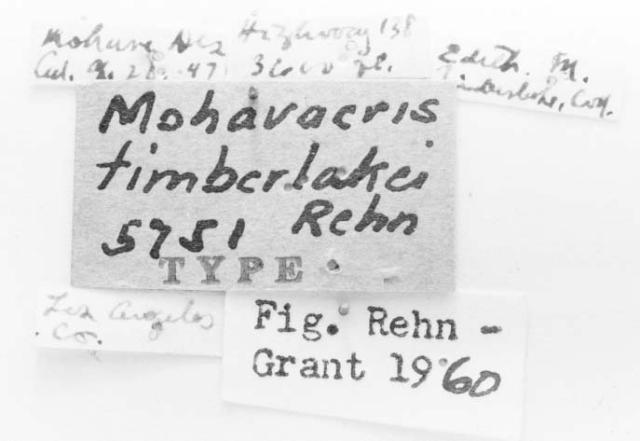 Mohave Des Highway 138
Cal. 9. 28. 47 3600 ft.
Edith M.
Coll.
Mohavacris
timberlakei
5751 Rehn
TYPE
Los Angeles
Co.
Fig. Rehn -
Grant 1960